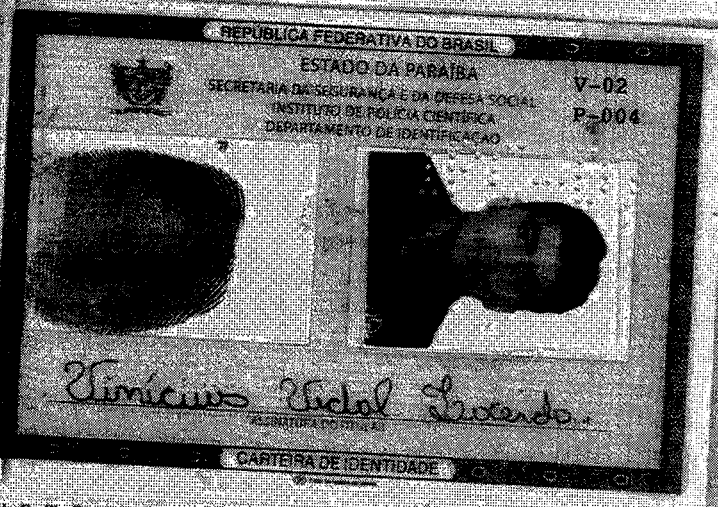 REPÚBLICA FEDERATIVA DO BRASIL
ESTADO DA PARAÍBA
SECRETARIA DA SEGURANÇA E DA DEFESA SOCIAL
INSTITUTO DE POLÍCIA CIENTÍFICA
DEPARTAMENTO DE IDENTIFICAÇÃO
V-02
P-004
Vinícius Vidal
ASSINATURA DO TITULAR
CARTEIRA DE IDENTIDADE